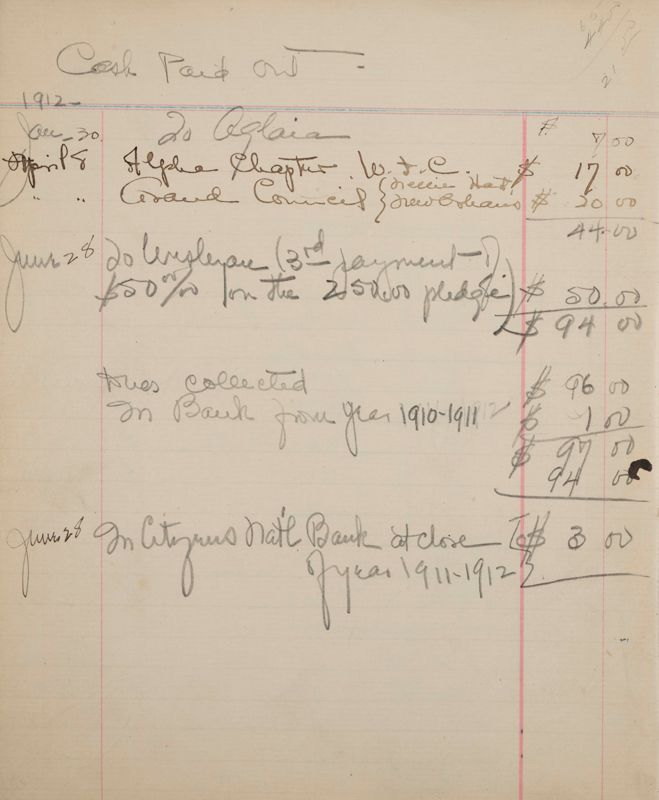 Cash Paid out -
1912-
Jan - 30 To Aglaia $ 7 00
April 8 Alpha Chapter W. F. C. $ 17 00
" " Grand Council { Nellie Hat
New Orleans $ 20 00
44.00
June 28 To Wesleyan (3rd payment -
$50 00/00 on the 250.00 pledge) $ 50.00
$ 94 00
Dues collected $ 96 00
In Bank from year 1910-1911 $ 1 00
$ 97 00
94 00
June 28 In Citizens Nat'l Bank at close $ 3 00
of year 1911-1912 }